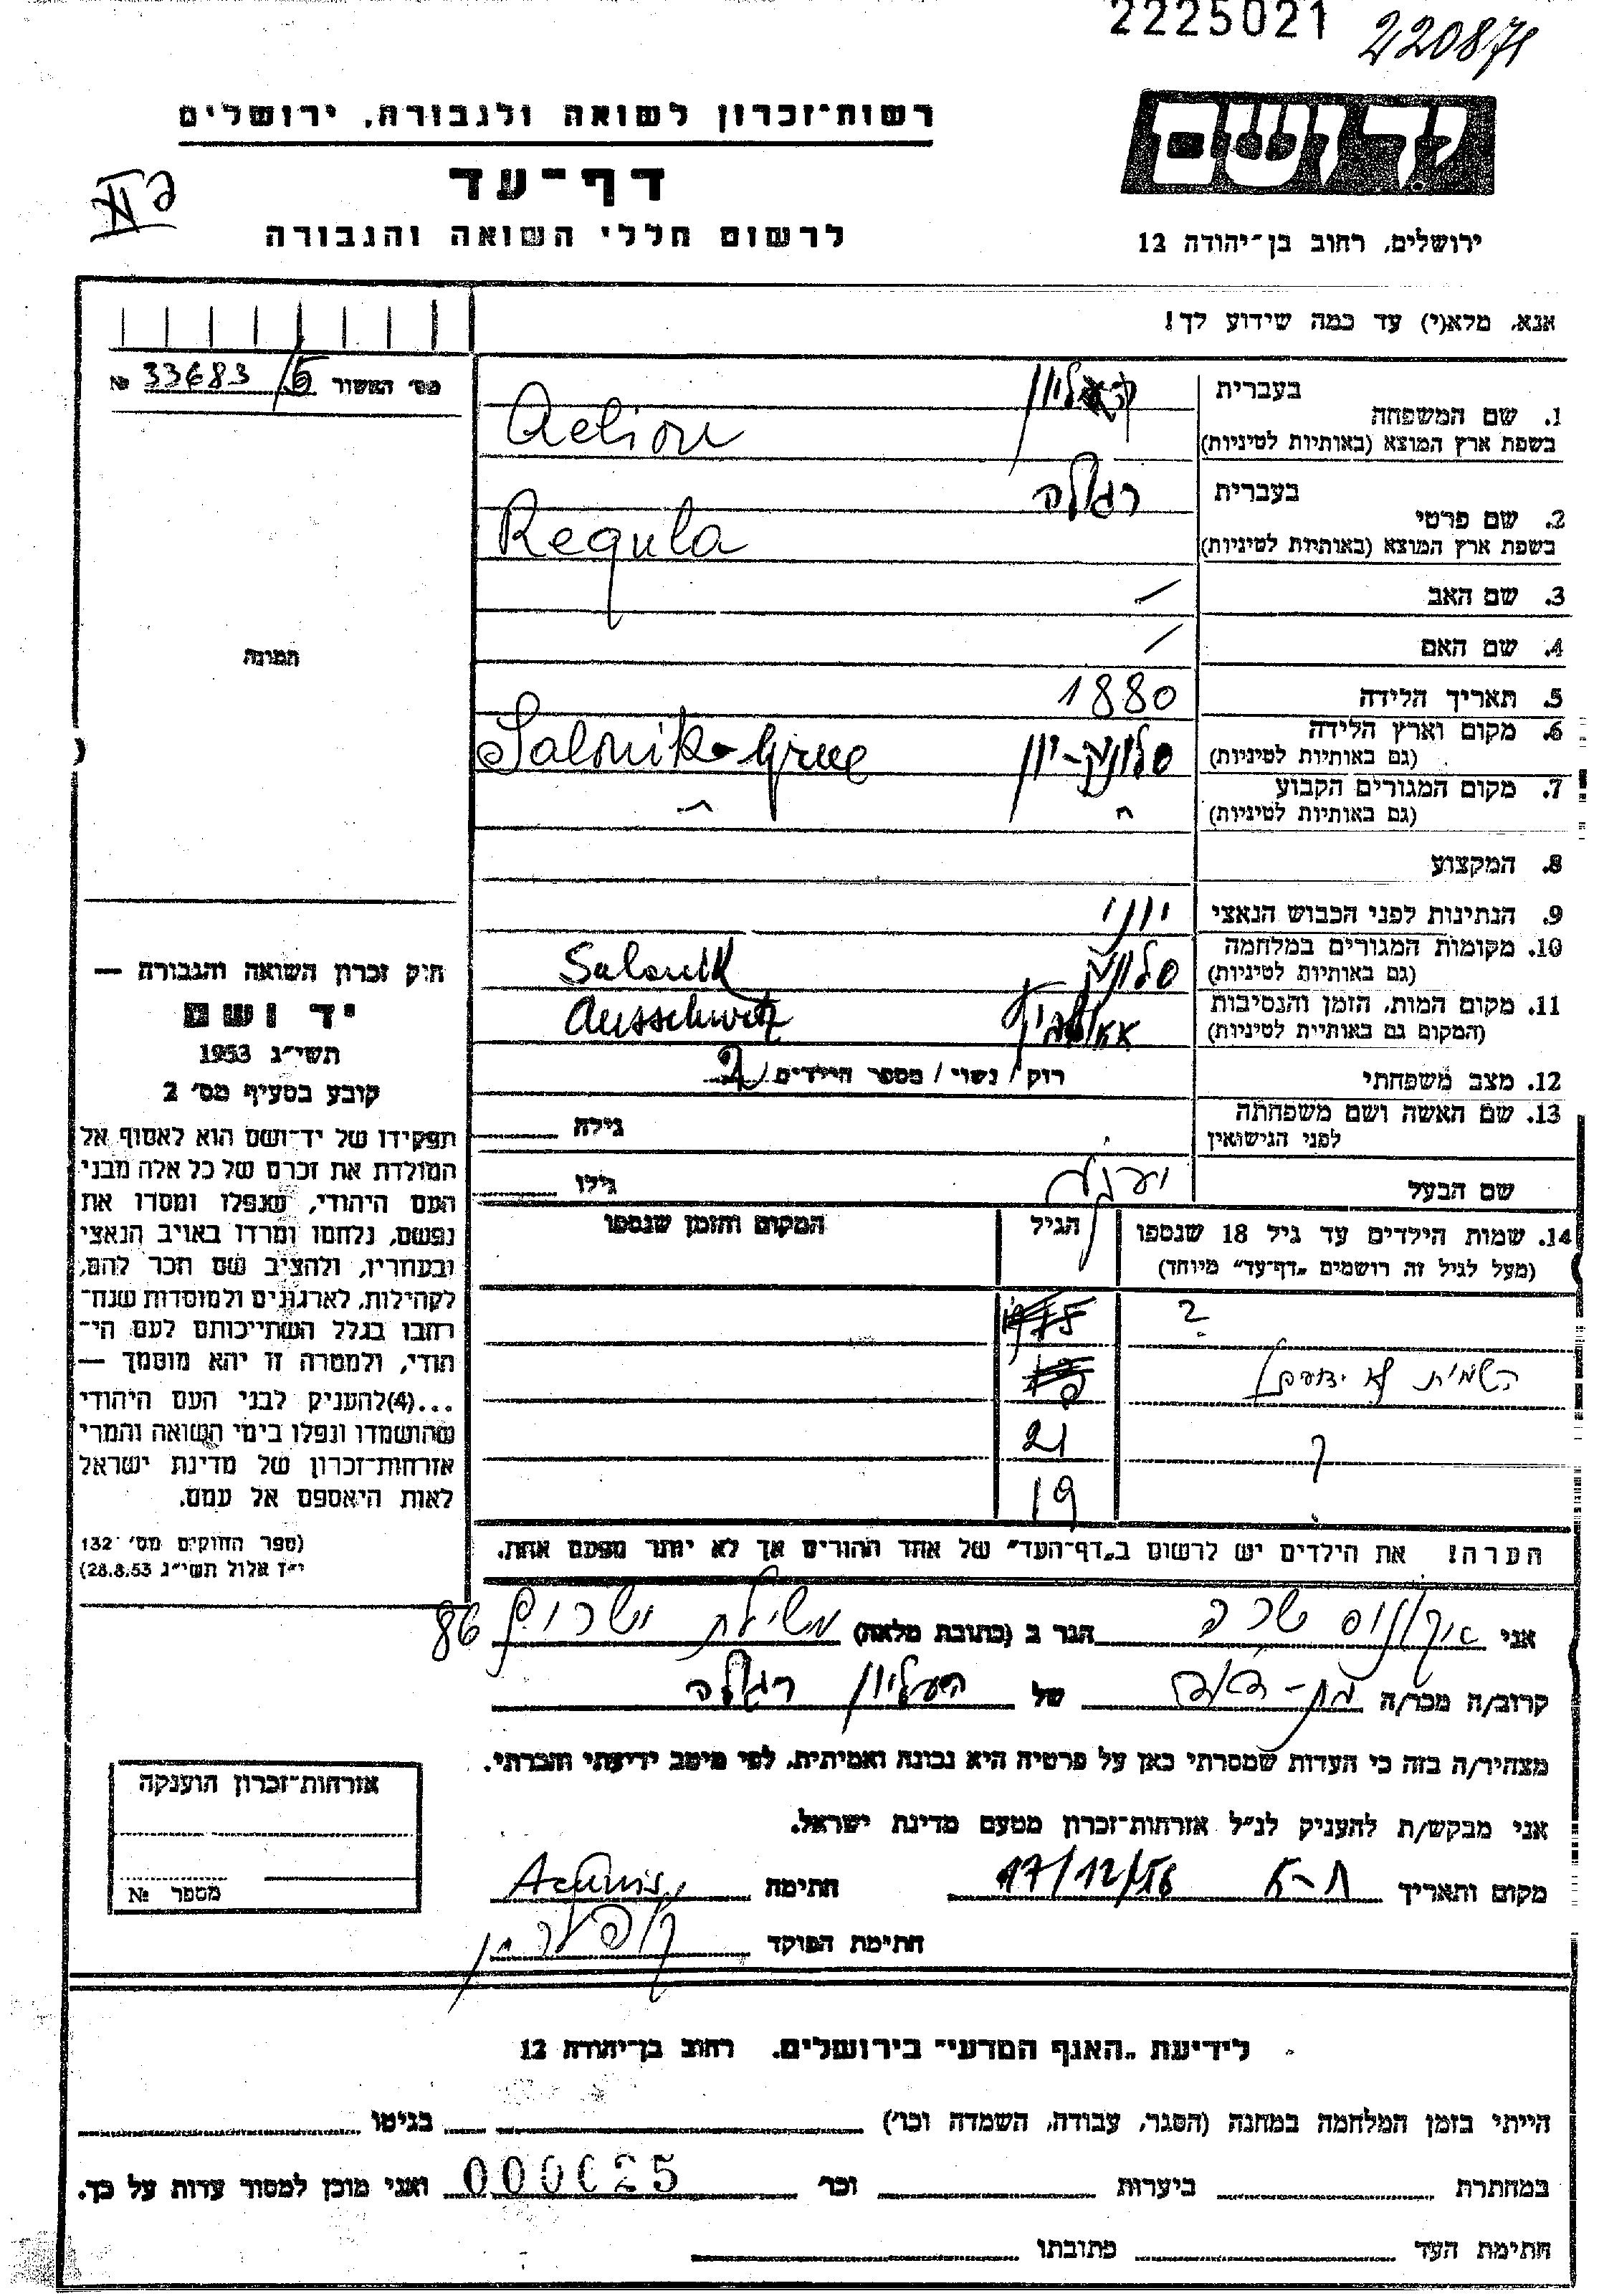 2225021
220871
רשות־זכרון לשואה ולגבורה, ירושלים
דף־עד
לרשום חללי השואה והגבורה
יד ושם
ירושלים, רחוב בן־יהודה 12
אנא, מלא(י) עד כמה שידוע לך!
מס׳ האשור 33683/6 №
תמונה
1. שם המשפחה
בעברית
בשפת ארץ המוצא (באותיות לטיניות) Aelion
2. שם פרטי
בעברית רגולה
בשפת ארץ המוצא (באותיות לטיניות) Regula
3. שם האב —
4. שם האם —
5. תאריך הלידה 1880
6. מקום וארץ הלידה סלוניק-יון Salonik-Grece
(גם באותיות לטיניות)
7. מקום המגורים הקבוע
(גם באותיות לטיניות)
8. המקצוע
9. הנתינות לפני הכבוש הנאצי יווני
10. מקומות המגורים במלחמה סלוניק Salonik
(גם באותיות לטיניות)
11. מקום המות, הזמן והנסיבות Ausschwitz
(המקום גם באותיות לטיניות)
12. מצב משפחתי רוק / נשוי / מספר הילדים 2
13. שם האשה ושם משפחתה
לפני הנישואין
גילה
שם הבעל
גילו
14. שמות הילדים עד גיל 18 שנספו
(מעל לגיל זה רושמים „דף־עד” מיוחד)
הגיל
המקום והזמן שנספו
?
השמות לא ידועים
21
19
הערה! את הילדים יש לרשום ב„דף־העד” של אחד ההורים אך לא יותר מפעם אחת.
חוק זכרון השואה והגבורה —
יד ושם
תשי״ג 1953
קובע בסעיף מס׳ 2
תפקידו של יד־ושם הוא לאסוף אל
המולדת את זכרם של כל אלה מבני
העם היהודי, שנפלו ומסרו את
נפשם, נלחמו ומרדו באויב הנאצי
ובעוזריו, ולהציב שם וזכר להם,
לקהילות, לארגונים ולמוסדות שנח־
רחבו בגלל השתייכותם לעם הי־
הודי, ולמטרה זו יהא מוסמך —
...(4)להעניק לבני העם היהודי
שהושמדו ונפלו בימי השואה והמרי
אזרחות־זכרון של מדינת ישראל
לאות היאספם אל עמם.
(ספר החוקים מס׳ 132
י״ז אלול תשי״ג 28.8.53)
אני שרה הגר ב (כתובת מלאה) 86
קרוב/ה מכר/ה של רגולה
מצהיר/ה בזה כי העדות שמסרתי כאן על פרטיה היא נכונה ואמיתית, לפי מיטב ידיעתי והכרתי.
אני מבקש/ת להעניק לנ״ל אזרחות־זכרון מטעם מדינת ישראל.
מקום ותאריך 17/12/56 חתימה
חתימת הפוקד
אזרחות־זכרון הוענקה
מספר №
לידיעת „האגף המדעי” בירושלים. רחוב בן־יהודה 12
הייתי בזמן המלחמה במחנה (הסגר, עבודה, השמדה וכו׳) בגיטו
במחתרת ביערות וכו׳ 000025 ואני מוכן למסור עדות על כך.
חתימת העד כתובתו